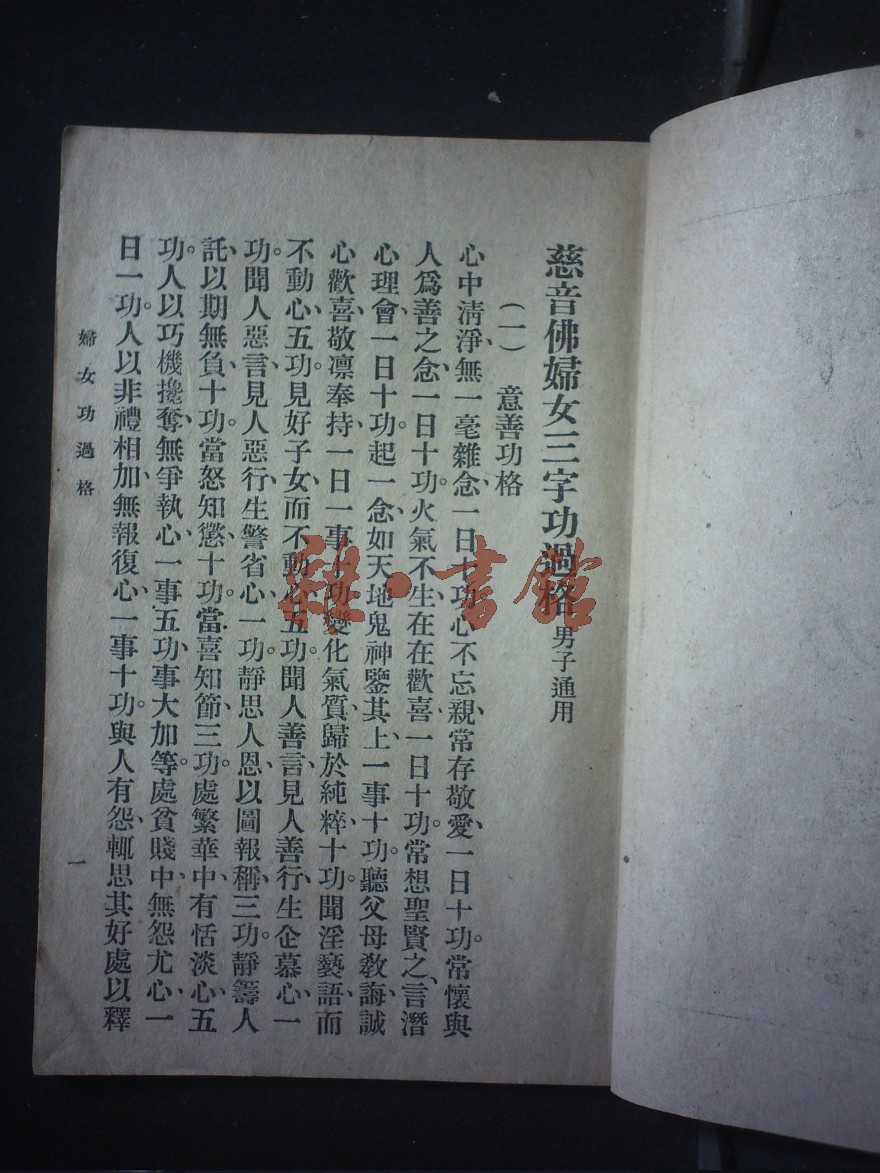 慈音佛婦女三字功過格 男子通用
(一) 意善功格
心中清淨、無一毫雜念、一日十功。心不忘親、常存敬愛、一日十功。常懷與
人爲善之念、一日十功。火氣不生、在在歡喜、一日十功。常想聖賢之言、潛
心理會、一日十功。起一念如天地鬼神鑒其上、一事十功。聽父母敎誨、誠
心歡喜、敬凛奉持、一日一事十功。變化氣質、歸於純粹、十功。聞淫褻語而
不動心、五功。見好子女而不動心、五功。聞人善言、見人善行、生企慕心、一
功。聞人惡言、見人惡行、生警省心、一功。靜思人恩、以圖報稱、三功。靜籌人
託、以期無負、十功。當怒知懲、十功。當喜知節、三功。處繁華中、有恬淡心、五
功。人以巧機攙奪、無爭執心、一事五功。事大加等。處貧賤中、無怨尤心、一
日一功。人以非禮相加、無報復心、一事十功。與人有怨、輒思其好處以釋
婦女功過格
一
雜·書館